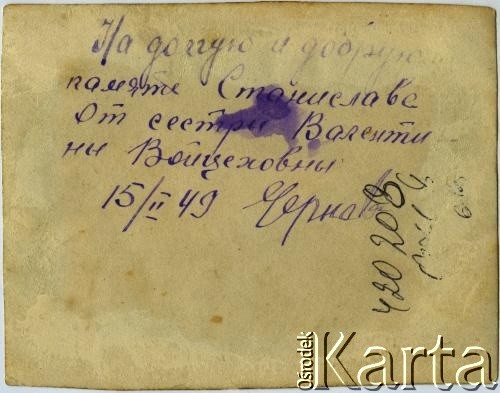 На долгую и добрую
памяте Станиславе
От сестри Валенти
ни Войцеховни
15/II 49 Черна
420 208
Ośrodek Karta